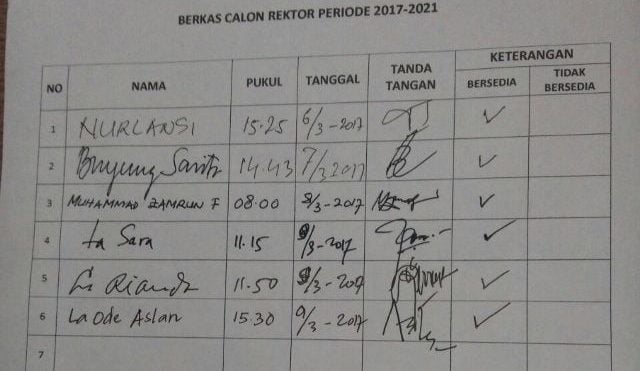 BERKAS CALON REKTOR PERIODE 2017-2021
NO NAMA PUKUL TANGGAL TANDA TANGAN KETERANGAN
BERSEDIA TIDAK BERSEDIA
1 NURLANSI 15.25 6/3-2017
2 Buyung Sarita 14.43 7/3 2017
3 MUHAMMAD ZAMRUN F 08.00 8/3-2017
4 La Sara 11.15 9/3-2017
5 La Rianda 11.50 9/3-2017
6 La Ode Aslan 15.30 9/3-2017
7